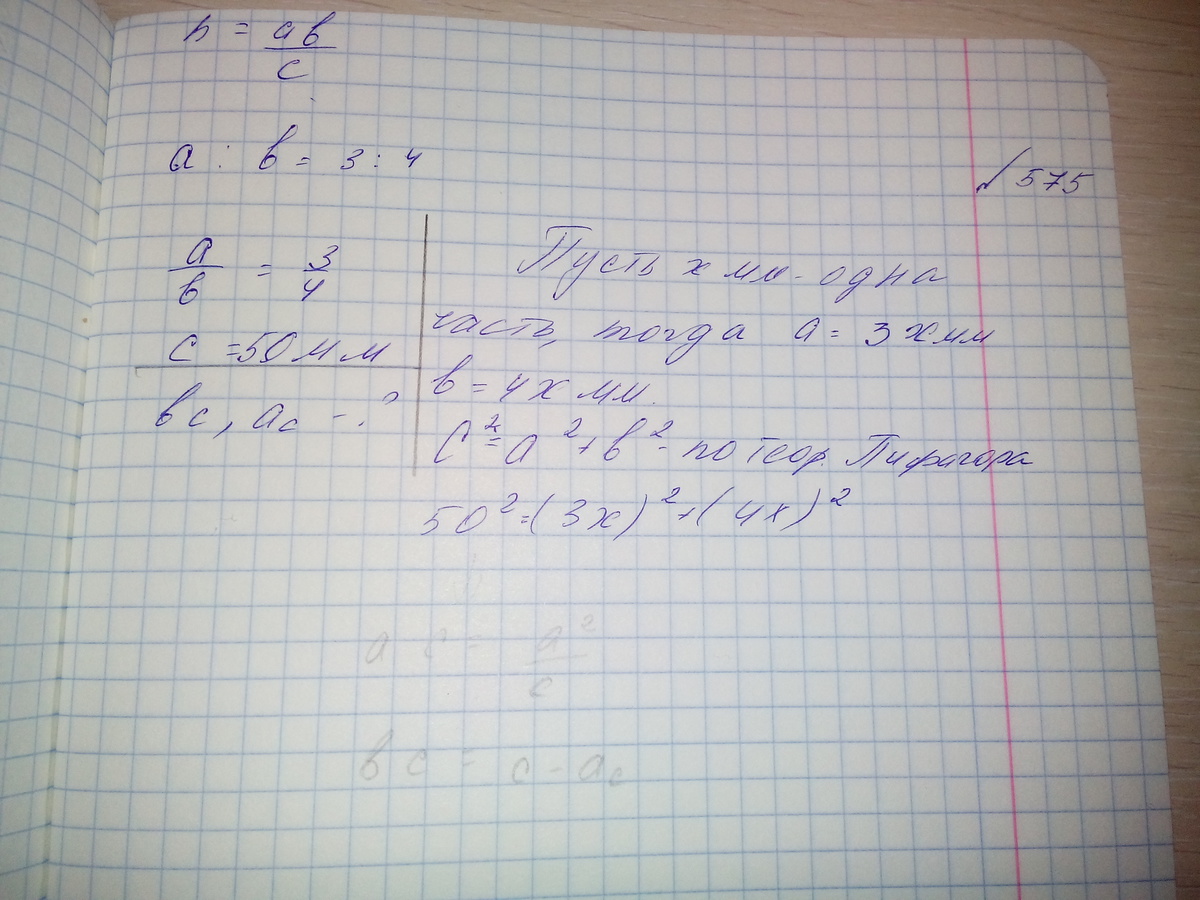 h = ab/c
a : b = 3 : 4
√575
a/b = 3/4
c = 50 мм
bc, ac - ?
Пусть х мм - одна
часть, тогда a = 3х мм
b = 4х мм.
c² = a² + b² - по теор. Пифагора
50² = (3х)² + (4х)²
ac = a²/c
bc = c - ac